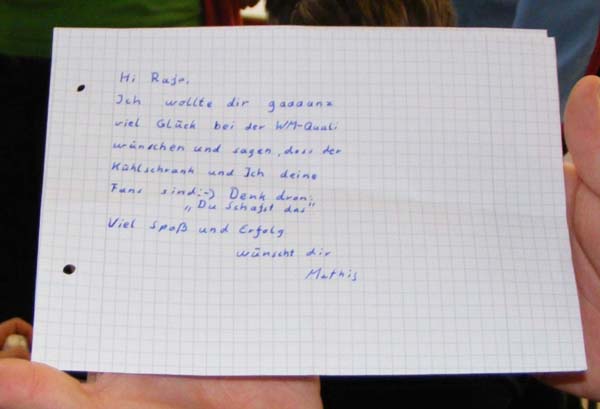 Hi Raje,
Ich wollte dir gaaaanz
viel Glück bei der WM-Quali
wünschen und sagen, dass der
Kühlschrank und Ich deine
Fans sind :-) Denk dran:
„Du schafst das"
Viel Spaß und Erfolg
wünscht dir
Mathis